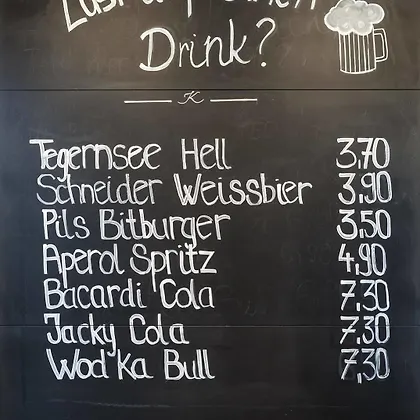 Lust auf einen
Drink?
K
Tegernsee Hell 3,70
Schneider Weissbier 3,90
Pils Bitburger 3,50
Aperol Spritz 4,90
Bacardi Cola 7,30
Jacky Cola 7,30
Wodka Bull 7,30